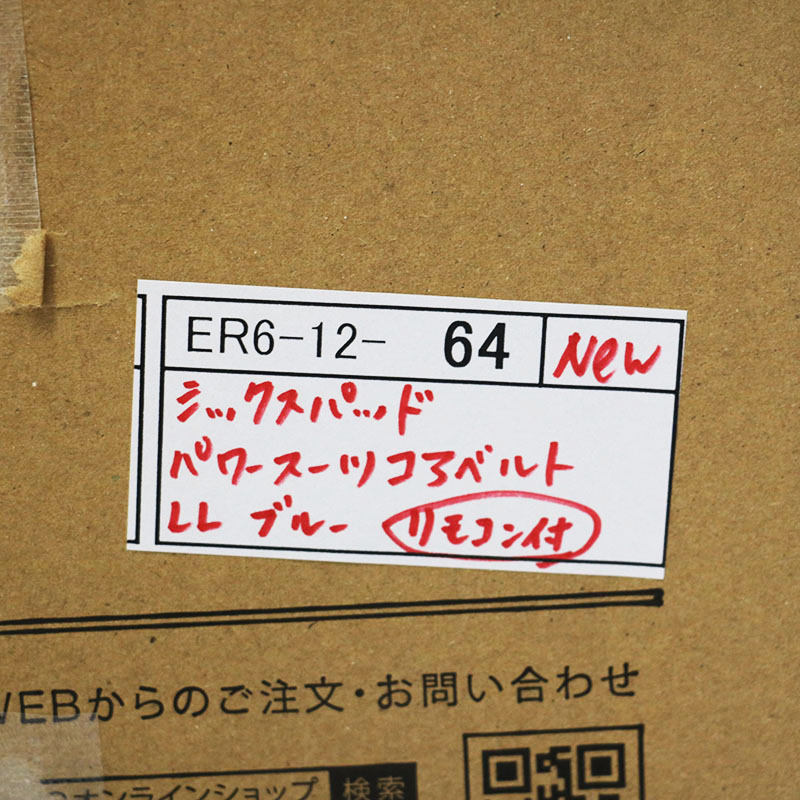 ER6-12- 64 New
シックスパッド
パワースーツコアベルト
LL ブルー リモコン付
WEBからのご注文・お問い合わせ
オンラインショップ 検索